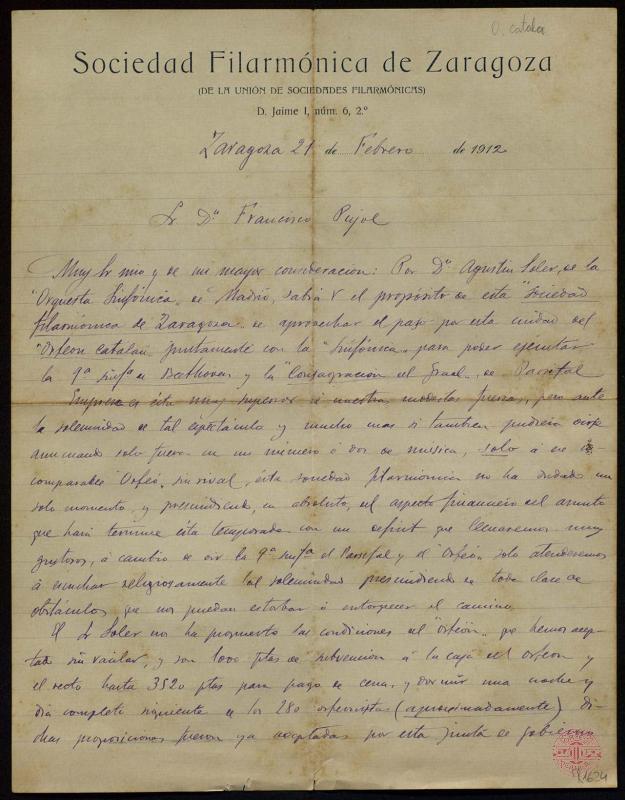 O. català
Sociedad Filarmónica de Zaragoza
(DE LA UNIÓN DE SOCIEDADES FILARMÓNICAS)
D. Jaime I, núm. 6, 2.º
Zaragoza 21 de Febrero de 1912
Sr Dn Francisco Pujol
Muy Sr mio y de mi mayor consideración: Por Dn Agustin Soler, de la
"Orquesta Sinfónica" de Madrid, sabrá V el propósito de esta "Sociedad
Filarmónica de Zaragoza" de aprovechar el paso por esta ciudad del
"Orfeon Catalan" juntamente con la "Sinfónica" para poder ejecutar
la 9ª sinfª de Beethoven y la "Consagración del Graal" de Parsifal
Empresa es ésta muy superior á nuestras modestas fuerzas, pero ante
la solemnidad de tal espectáculo y mucho mas si tambien pudiera oirse
aun cuando solo fuera en un número ó dos de música, solo á ese in-
comparable Orfeó, sin rival, ésta sociedad filarmónica no ha dudado un
solo momento, y prescindiendo, en absoluto, del aspecto financiero del asunto
que hará termine ésta temporada con un deficit que llevaremos muy
gustosos, á cambio de oir la 9ª sinfª el Parsifal y el Orfeón solo atenderemos
á escuchar religiosamente tal solemnidad prescindiendo de toda clase de
obstáculos que nos puedan estorbar ó entorpecer el camino
El Sr Soler nos ha propuesto las condiciones del "orfeón" que hemos acep-
tado sin vacilar, y son 1000 ptas de subvencion á la caja del orfeon y
el resto hasta 3520 ptas para pago de cena, y dormir una noche y
dia completo siguiente de los 280 orfeonistas (aproximadamente) di-
chas proposiciones fueron ya aceptadas por esta junta de gobierno